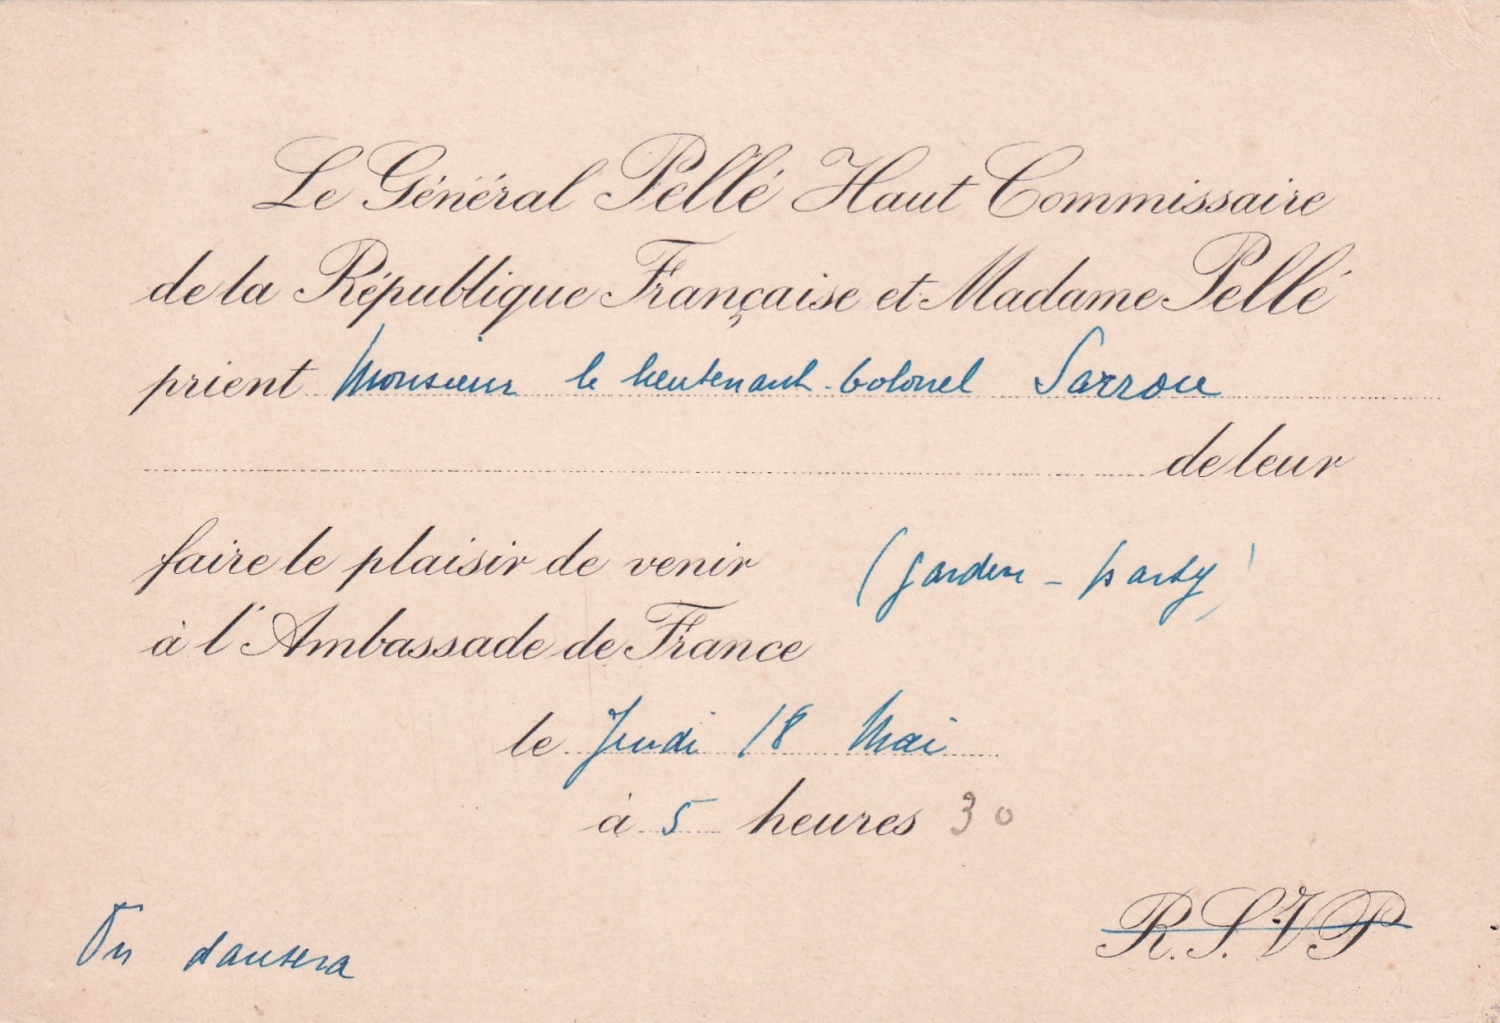 Le Général Pellé Haut Commissaire
de la République Française et Madame Pellé
prient Monsieur le lieutenant-Colonel Sarrou
de leur
faire le plaisir de venir (garden-party)
à l'Ambassade de France
le Jeudi 18 Mai
à 5 heures 30
On dansera R.S.V.P.